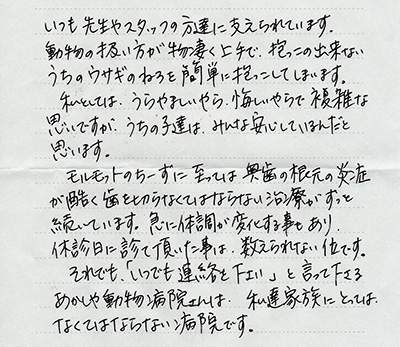 いつも先生やスタッフの方達に支えられています。
動物の扱い方が物凄く上手で、抱っこの出来ない
うちのウサギのねろを簡単に抱っこしてしまいます。
私としては、うらやましいやら、悔しいやらで複雑な
思いですが、うちの子達は、みんな安心しているんだと
思います。
モルモットのちーずに至っては奥歯の根元の炎症
が酷く歯を切らなくてはならない治療がずっと
続いています。急に体調が変化する事もあり、
休診日に診て頂いた事は、数えられない位です。
それでも、「いつでも連絡を下さい」と言って下さる
あかしや動物病院さんは、私達家族にとっては、
なくてはならない病院です。